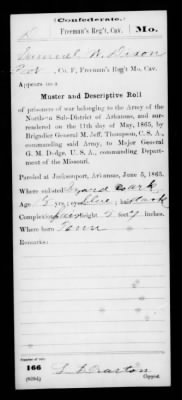 (Confederate.)
D Freeman's Reg't, Cav. Mo.
Samuel W. Dixon
Pvt, Co. F, Freeman's Reg't Mo. Cav.
Appears on a
Muster and Descriptive Roll
of prisoners of war belonging to the Army of the
Northern Sub-District of Arkansas, and sur-
rendered on the 11th day of May, 1865, by
Brigadier General M. Jeff. Thompson, C. S. A.,
commanding said Army, to Major General
G. M. Dodge, U. S. A., commanding Depart-
ment of the Missouri.
Paroled at Jacksonport, Arkansas, June 5, 1865.
Where enlisted Ark
Age yrs; eyes blue; hair dark
Complexion fair; height 5 feet inches.
Where born Tenn
Remarks:
Number of roll:
166
Copyist.